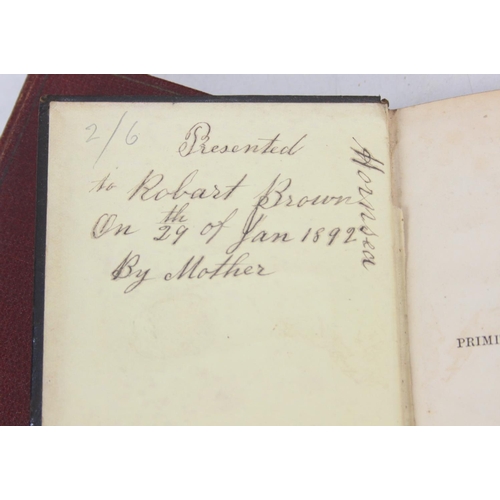 2/6
Presented
to Robart Brown
On 29th of Jan 1892
By Mother
Hornsea
PRIMI